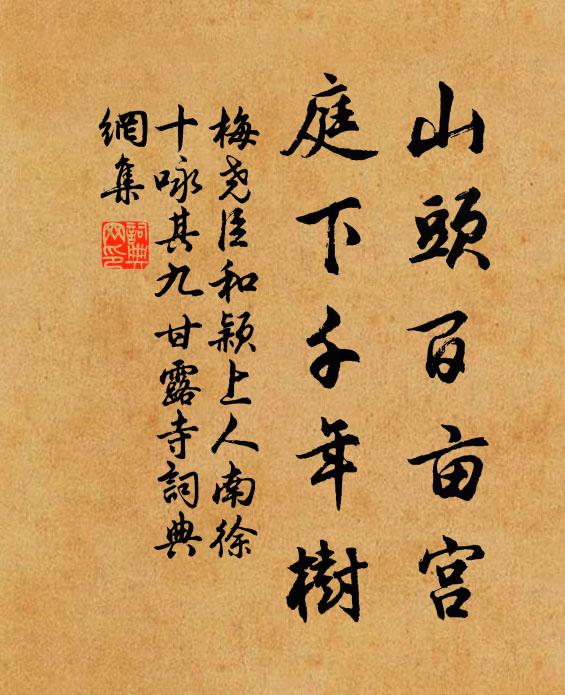 山頭百亩宫
庭下千年樹
梅尧臣和颖上人南徐
十咏其九甘露寺詞典
網集
詞典
网印